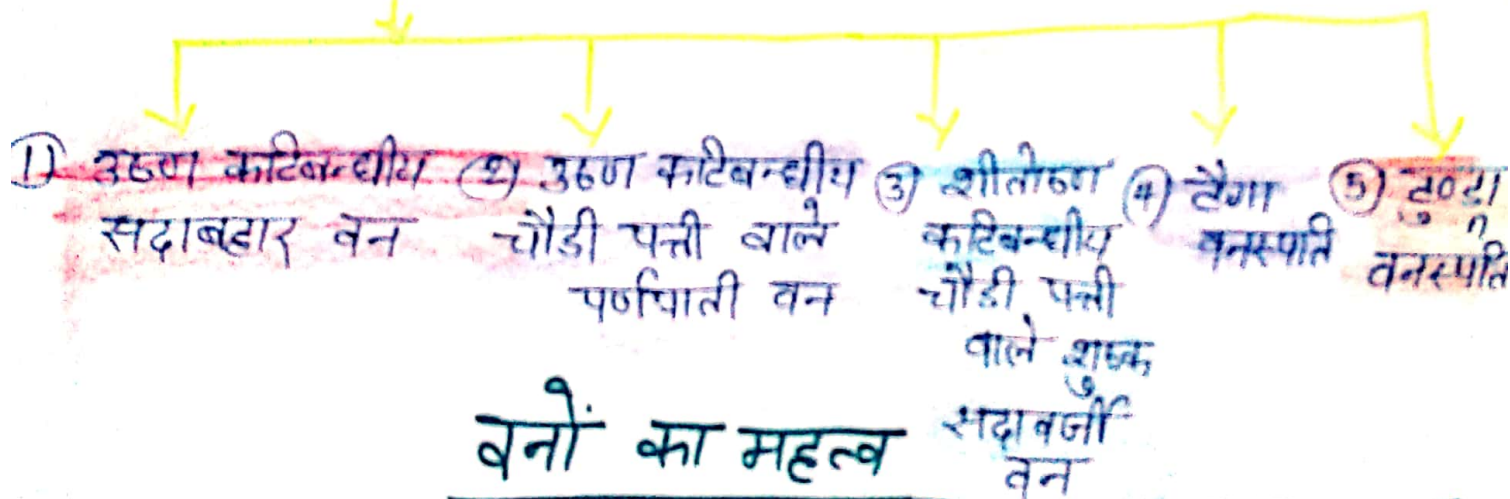 ① उष्ण कटिबन्धीय
सदाबहार वन
② उष्ण कटिबन्धीय
चौडी पत्ती वाले
पर्णपाती वन
③ शीतोष्ण
कटिबन्धीय
चौडी पत्ती
वाले शुष्क
सदावर्जी
वन
④ टैगा
वनस्पति
⑤ टुण्ड्रा
वनस्पति
वनों का महत्व